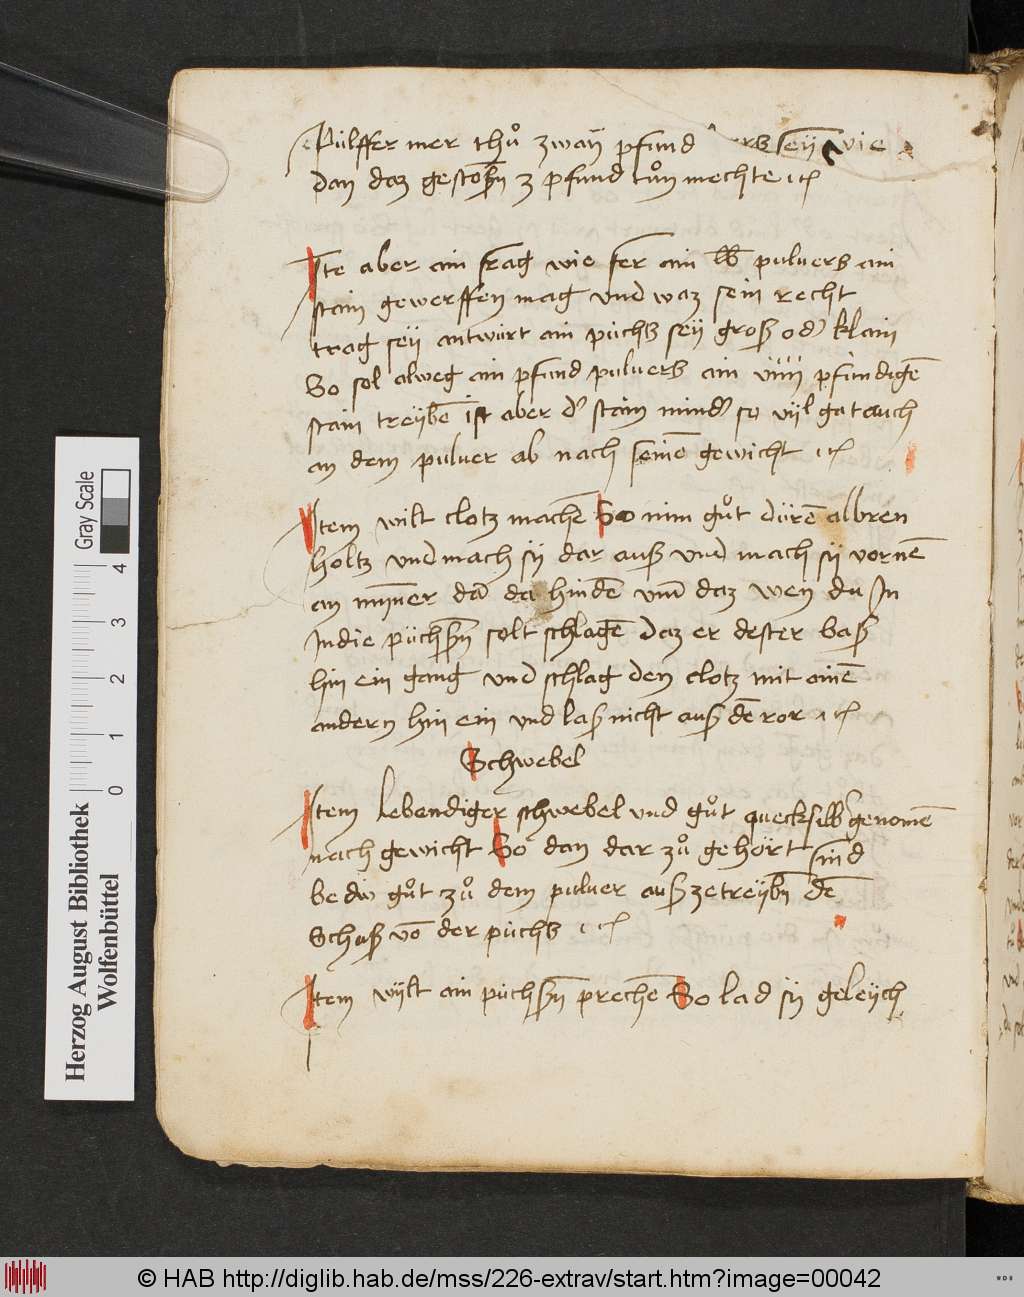 Pulffer mer thuͦ zwaÿ pfund seÿ wie
dan daz gestoßn̄ 3 pfund tuͦn mechte ⁊c̃
Ite aber ain frag wie fer ain lb pulvers ain
stain gewerffen mag vnd waz sein recht
trag seÿ antwurt ain püchs seÿ groß od̕ klain
So sol alweg ain pfund pulvers ain viiii pfündigē
stain treÿbē ist aber d̕ stain mind̕ so vÿl gat auch
an dem puluer ab nach seinē gewicht ⁊c̃
Item wilt clotz machē So nim guͦt dürē albren
holtz vnd mach sÿ dar auß vnd mach sÿ vornē
an da hindē vm̄ daz wen du In
In die püchßn̄ solt schlagē daz er dester baß
hin ein gang vnd schlag den clotz mit ainē
andern hin ein vnd laß nicht auß dē ror ⁊c̃
Schwebel
Item lebendiger schwebel vnd guͦt quecksilb̕ genomē
nach gewicht So dan dar zuͦ gehört sind
bedw guͦt zuͦ dem puluer auß zetreÿbn̄ dē
Schuß vō der püchs ⁊c̃
Item wÿlt ain püchßn̄ prechē So lad sÿ geleÿch
Herzog August Bibliothek
Wolfenbüttel
Gray Scale
0 1 2 3 4
© HAB http://diglib.hab.de/mss/226-extrav/start.htm?image=00042